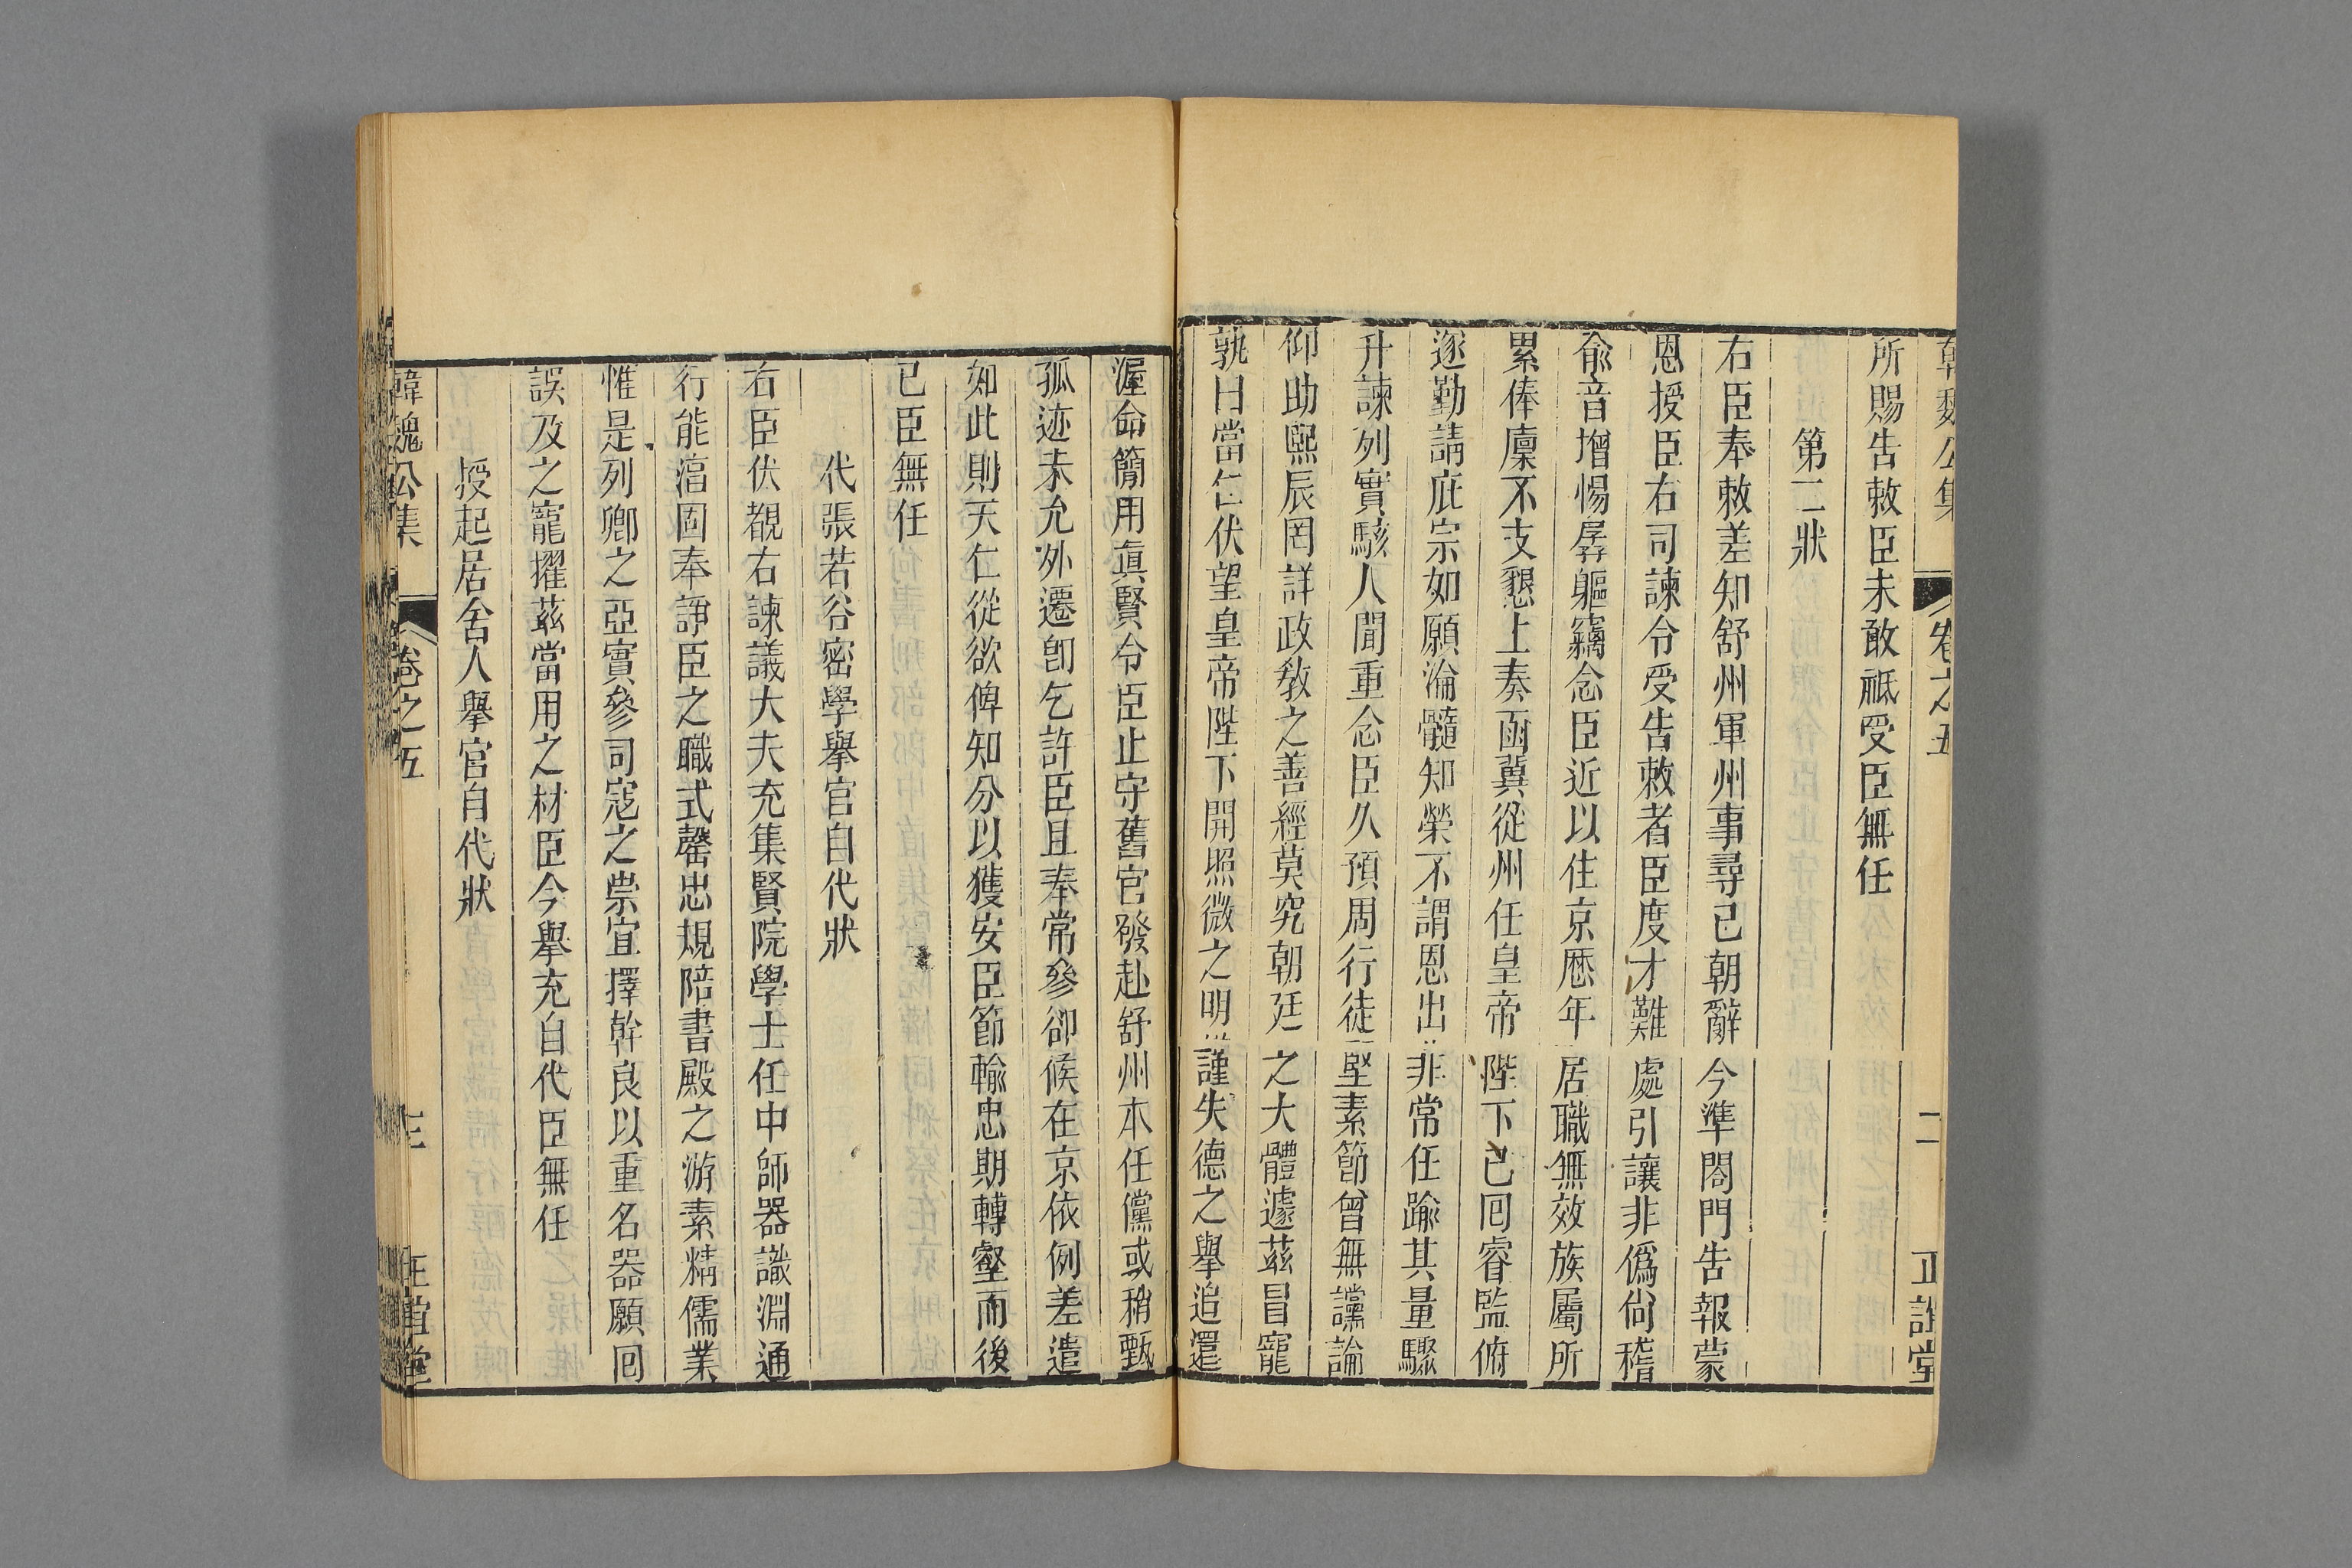 韓魏公集 卷之五 二 正誼堂
所賜告敕臣未敢祗受臣無任
第二狀
右臣奉敕差知舒州軍州事尋已朝辭今準閤門告報蒙
恩授臣右司諫令受告敕者臣度才難處引讓非僞尙稽
兪音增惕孱軀竊念臣近以住京歷年居職無效族屬所
累俸廩不支懇上奏函冀從州任皇帝陛下已回睿監俯
遂勤請庇宗如願淪髓知榮不謂恩出非常任踰其量驟
升諫列實駭人聞重念臣久預周行徒堅素節曾無讜論
仰助熙辰罔詳政敎之善經莫究朝廷之大體遽茲冒寵
孰曰當仁伏望皇帝陛下開照微之明謹失德之舉追還
渥命簡用眞賢令臣止守舊官發赴舒州本任儻或稍甄
孤迹未允外遷卽乞許臣且奉常參卻候在京依例差遣
如此則天仁從欲俾知分以獲安臣節輸忠期轉壑而後
已臣無任
代張若谷密學舉官自代狀
右臣伏覩右諫議大夫充集賢院學士任中師器識淵通
行能滀固奉諍臣之職式罄忠規陪書殿之游素精儒業
惟是列卿之亞實參司寇之崇宜擇幹良以重名器願回
誤及之寵擢茲當用之材臣今舉充自代臣無任
授起居舍人舉官自代狀
韓魏公集 卷之五 三 正誼堂